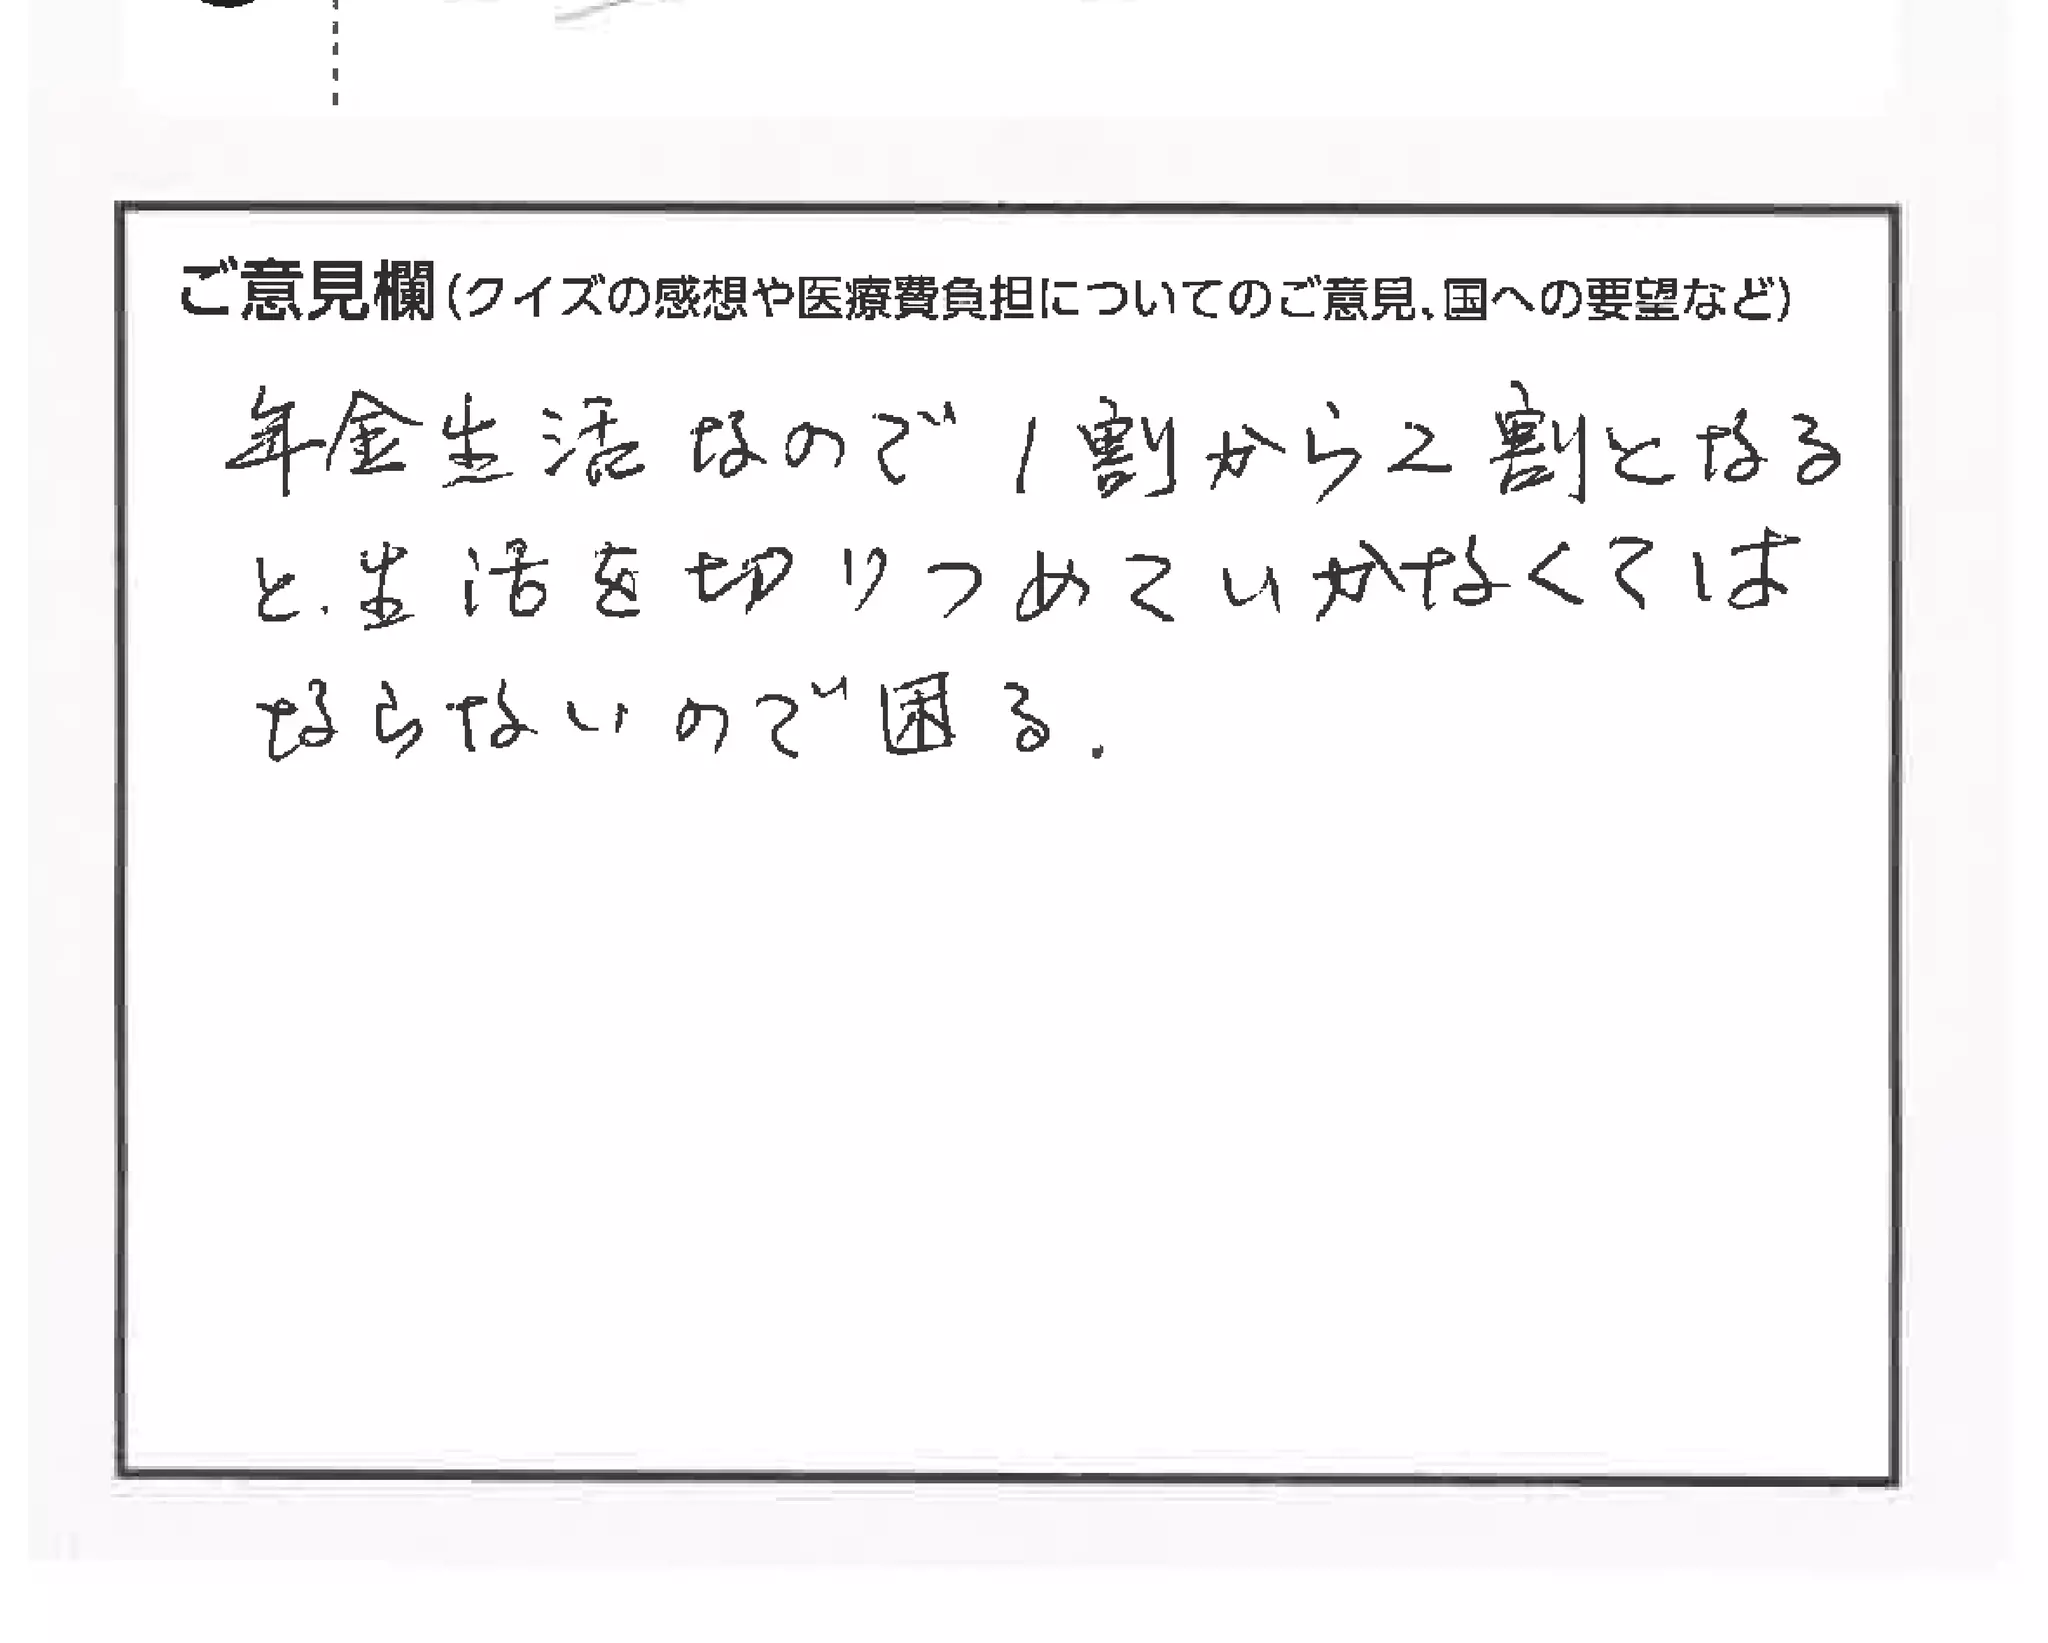 ご意見欄(クイズの感想や医療費負担についてのご意見、国への要望など)
年金生活なので1割から2割となる
と.生活を切りつめていかなくては
ならないので困る.